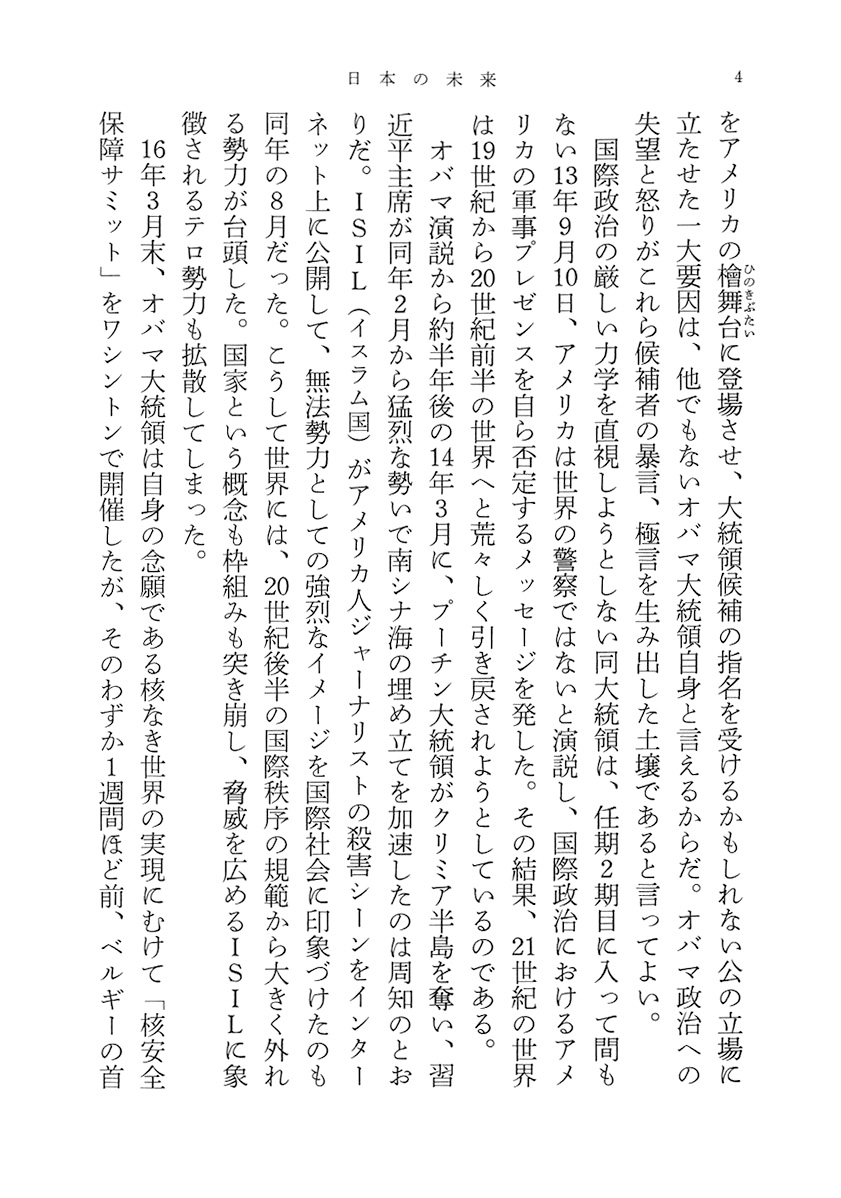 日本の未来
4
をアメリカの檜舞台に登場させ、大統領候補の指名を受けるかもしれない公の立場に
ひのきぶたい
立たせた一大要因は、他でもないオバマ大統領自身と言えるからだ。オバマ政治への
失望と怒りがこれら候補者の暴言、極言を生み出した土壌であると言ってよい。
国際政治の厳しい力学を直視しようとしない同大統領は、任期2期目に入って間も
ない13年9月10日、アメリカは世界の警察ではないと演説し、国際政治におけるアメ
リカの軍事プレゼンスを自ら否定するメッセージを発した。その結果、21世紀の世界
は19世紀から20世紀前半の世界へと荒々しく引き戻されようとしているのである。
オバマ演説から約半年後の14年3月に、プーチン大統領がクリミア半島を奪い、習
近平主席が同年2月から猛烈な勢いで南シナ海の埋め立てを加速したのは周知のとお
りだ。ISIL（イスラム国）がアメリカ人ジャーナリストの殺害シーンをインター
ネット上に公開して、無法勢力としての強烈なイメージを国際社会に印象づけたのも
同年の8月だった。こうして世界には、20世紀後半の国際秩序の規範から大きく外れ
る勢力が台頭した。国家という概念も枠組みも突き崩し、脅威を広めるISILに象
徴されるテロ勢力も拡散してしまった。
16年3月末、オバマ大統領は自身の念願である核なき世界の実現にむけて「核安全
保障サミット」をワシントンで開催したが、そのわずか1週間ほど前、ベルギーの首